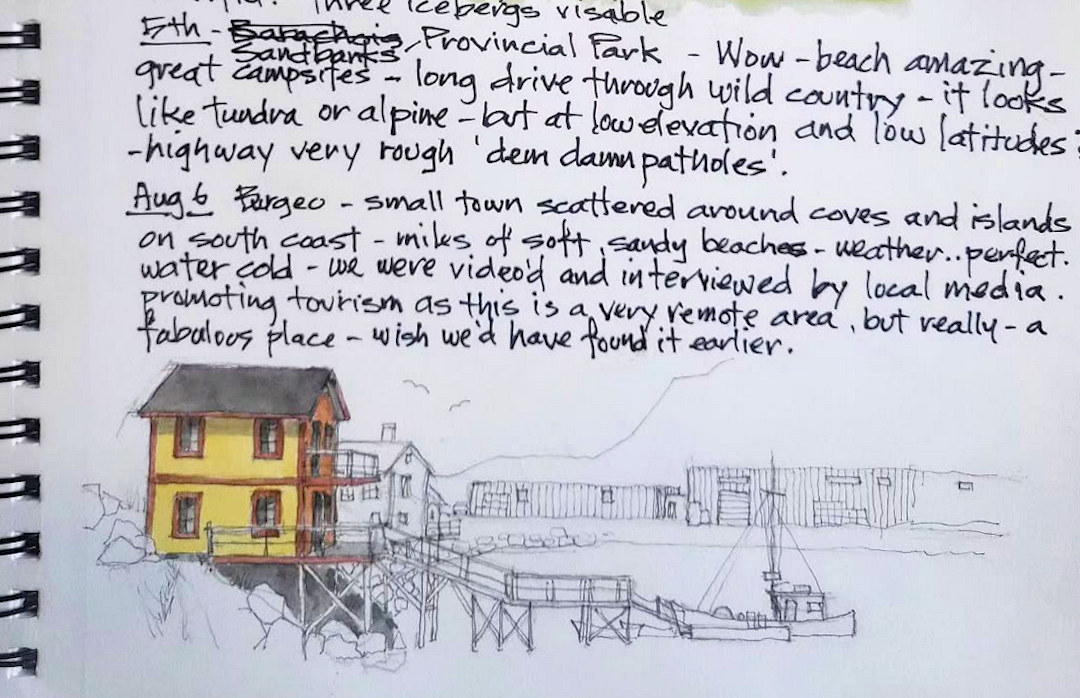 Three icebergs visable
5th - Barachois Provincial Park - Wow - beach amazing -
Sandbanks
great campsites - long drive through wild country - it looks
like tundra or alpine - but at low elevation and low latitudes?
-highway very rough 'dem damn patholes'.
Aug 6 Burgeo - small town scattered around coves and islands
on south coast - miles of soft, sandy beaches - weather.. perfect.
water cold - we were video'd and interviewed by local media.
promoting tourism as this is a very remote area, but really - a
fabulous place - wish we'd have found it earlier.